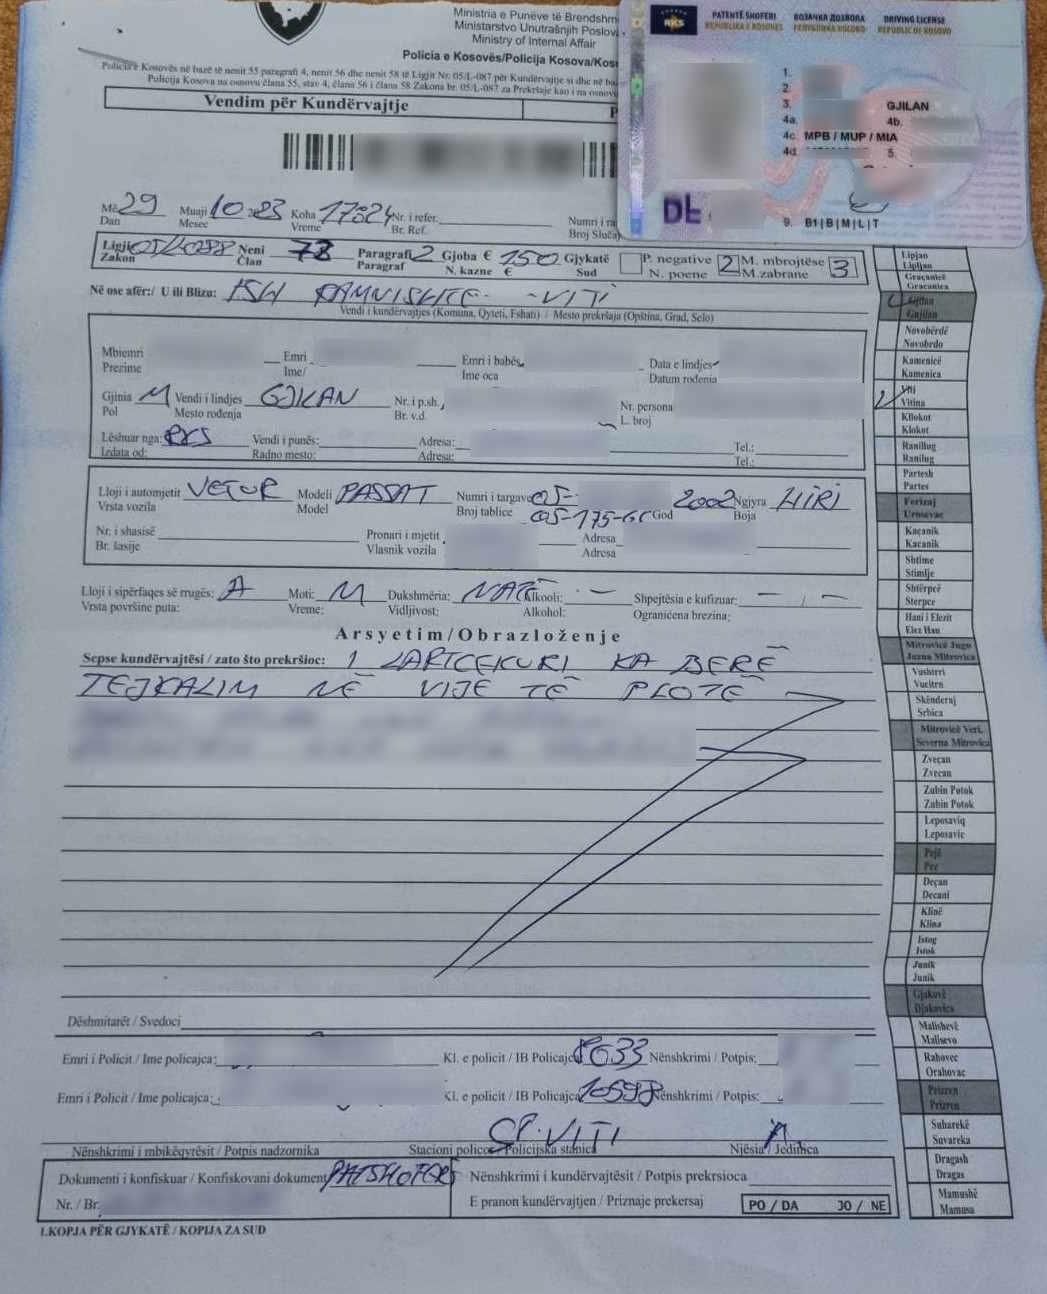 Ministria e Punëve të Brendshm
Ministarstvo Unutrašnjih Poslov
Ministry of Internal Affair
Policia e Kosovës/Policija Kosova/Kos
Policia e Kosovës në bazë të nenit 55 paragrafi 4, nenit 56 dhe nenit 58 të Ligjit Nr. 05/L-087 për Kundërvajtje si dhe në ba
Policija Kosova na osnovu člana 55, stav 4, člana 56 i člana 58 Zakona br. 05/L-087 za Prekršaje kao i na osnovu
Vendim për Kundërvajtje P
RKS
PATENTË SHOFERI ВОЗАЧКА ДОЗВОЛА DRIVING LICENSE
REPUBLIKA E KOSOVËS РЕПУБЛИКА КОСОВО REPUBLIC OF KOSOVO
1.
2.
3. GJILAN
4a. 4b.
4c. MPB / MUP / MIA
4d. 5.
DL
9. B1|B|M|L|T
Më 29 Muaji 10 2023 Koha 17:24 Nr. i refer. Numri i ra
Dan Mesec Vreme Br. Ref. Broj Sluča
Ligji 05/L-088 Neni 78 Paragrafi 2 Gjoba € 150 Gjykatë P. negative 2 M. mbrojtëse 3
Zakon Član Paragraf N. kazne € Sud N. poene M.zabrane
Në ose afër:/ U ili Blizu: - VITI
Vendi i kundërvajtjes (Komuna, Qyteti, Fshati) / Mesto prekršaja (Opština, Grad, Selo)
Mbiemri Emri Emri i babës Data e lindjes
Prezime Ime/ Ime oca Datum rođenia
Gjinia M Vendi i lindjes GJILAN Nr. i p.sh. Nr. persona
Pol Mesto rođenja Br. v.d. L. broj
Lëshuar nga: RKS Vendi i punës: Adresa: Tel.:
Izdata od: Radno mesto: Adresa: Tel.:
Lloji i automjetit VETUR Modeli PASSAT Numri i targave 05- 2002 Ngjyra HIRI
Vrsta vozila Model Broj tablice 05-175-GC God Boja
Nr. i shasisë Pronari i mjetit Adresa
Br. šasije Vlasnik vozila Adresa
Lloji i sipërfaqes së rrugës: A Moti: M Dukshmëria: NATË Alkooli: - Shpejtësia e kufizuar: - , -
Vrsta površine puta: Vreme: Vidljivost: Alkohol: Ograničena brezina:
Arsyetim/Obrazloženje
Sepse kundërvajtësi / zato što prekršioc: I LARTCEKURI KA BERË
TEJKALIM NË VIJE TË PLOTË
Dëshmitarët / Svedoci
Emri i Policit / Ime policajca: Kl. e policit / IB Policajca 8633 Nënshkrimi / Potpis:
Emri i Policit / Ime policajca: Kl. e policit / IB Policajca 10598 Nënshkrimi / Potpis:
SP. VITI
Nënshkrimi i mbikëqyrësit / Potpis nadzornika Stacioni policor Policijska stanica Njësia/ Jedinica
Dokumenti i konfiskuar / Konfiskovani dokument PATSHOFERI Nënshkrimi i kundërvajtësit / Potpis prekrsioca
Nr. / Br. E pranon kundërvajtjen / Priznaje prekersaj PO / DA JO / NE
I.KOPJA PËR GJYKATË / KOPIJA ZA SUD
Lipjan
Lipljan
Graçanicë
Gracanica
Gjilan
Gnjilan
Novobërdë
Novobrdo
Kamenicë
Kamenica
Viti
Vitina
Kllokot
Klokot
Ranillug
Ranilug
Partesh
Partes
Ferizaj
Urosevac
Kaçanik
Kacanik
Shtime
Stimlje
Shtërpcë
Sterpce
Hani i Elezit
Elez Han
Mitrovicë Jugo
Juzna Mitrovica
Vushtrri
Vucitrn
Skënderaj
Srbica
Mitrovicë Veri.
Severna Mitrovica
Zveçan
Zvecan
Zubin Potok
Zubin Potok
Leposaviq
Leposavic
Pejë
Pec
Deçan
Decani
Klinë
Klina
Istog
Istok
Junik
Junik
Gjakovë
Djakovica
Malishevë
Malisevo
Rahovec
Orahovac
Prizren
Prizren
Suharekë
Suvareka
Dragash
Dragas
Mamushë
Mamusa